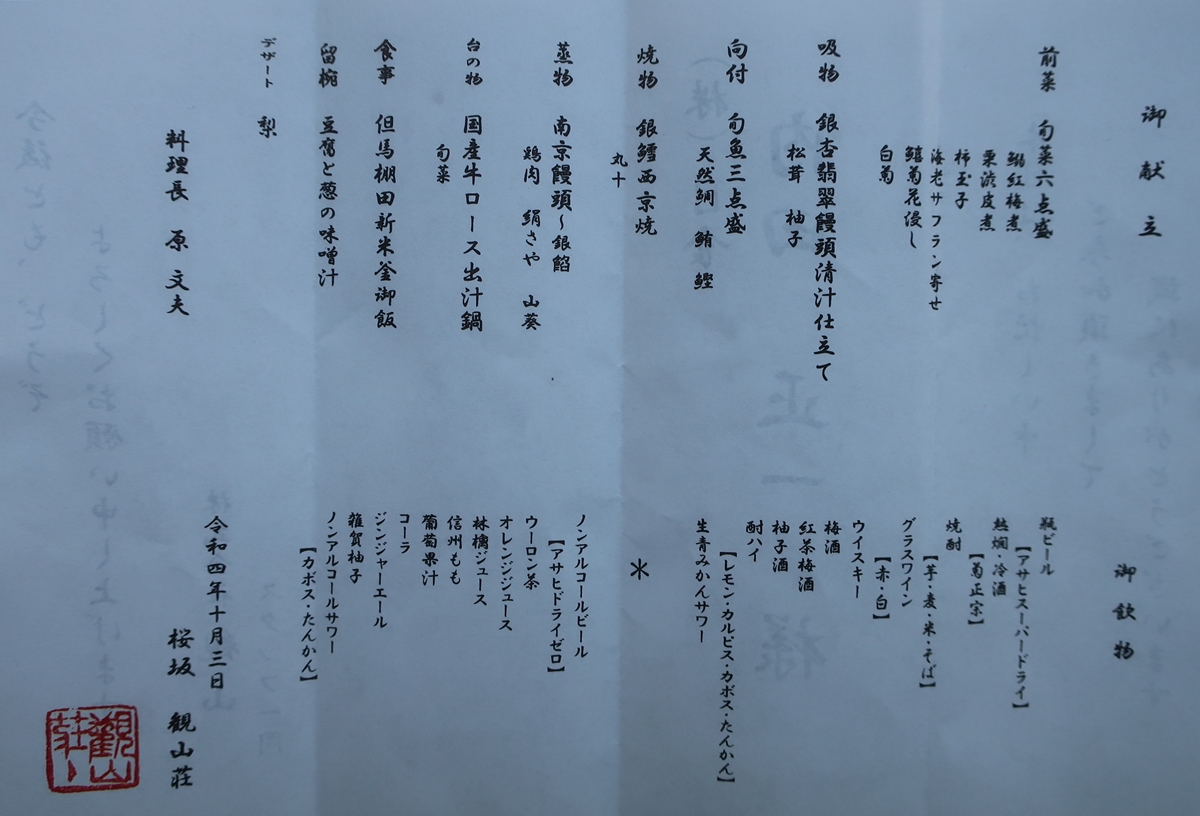 御献立
前菜 旬菜六点盛
鰯紅梅煮
栗渋皮煮
柿玉子
海老サフラン寄せ
鱚菊花浸し
白菊
吸物 銀杏翡翠饅頭清汁仕立て
松茸 柚子
向付 旬魚三点盛
天然鯛 鮪 鰹
焼物 銀鱈西京焼
丸十
蒸物 南京饅頭〜銀餡
鶏肉 絹さや 山葵
台の物 国産牛ロース出汁鍋
旬菜
食事 但馬棚田新米釜御飯
留椀 豆腐と葱の味噌汁
デザート 梨
料理長 原 文夫
御飲物
瓶ビール
【アサヒスーパードライ】
熱燗・冷酒
【菊正宗】
焼酎
【芋・麦・米・そば】
グラスワイン
【赤・白】
ウイスキー
梅酒
紅茶梅酒
柚子酒
酎ハイ
【レモン・カルピス・カボス・たんかん】
生青みかんサワー
＊
ノンアルコールビール
【アサヒドライゼロ】
ウーロン茶
オレンジジュース
林檎ジュース
信州もも
葡萄果汁
コーラ
ジンジャーエール
雑賀柚子
ノンアルコールサワー
【カボス・たんかん】
令和四年十月三日
桜坂 観山荘